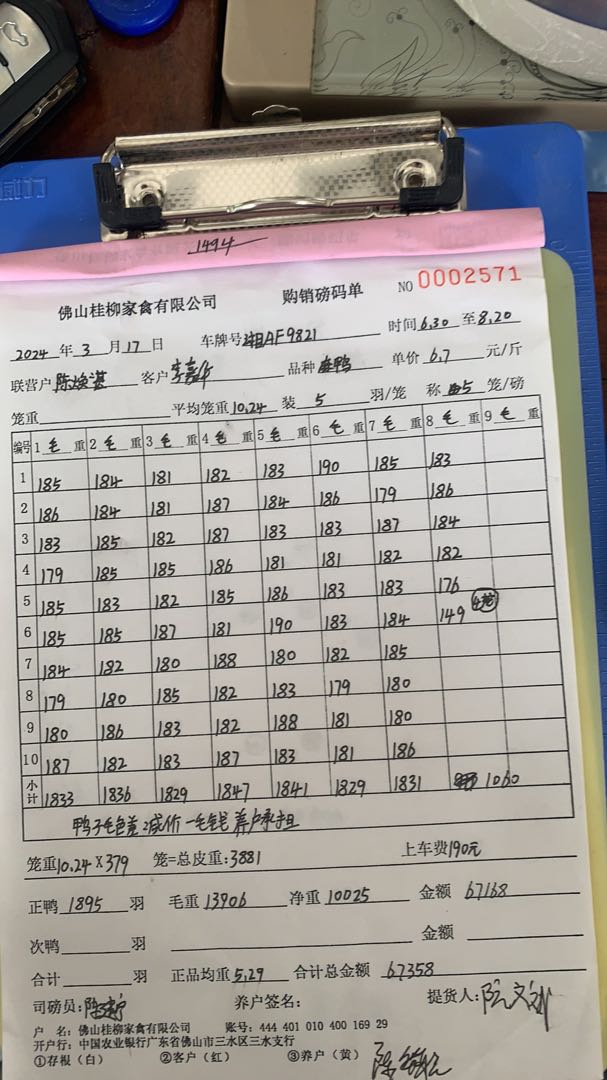 1494
佛山桂柳家禽有限公司 购销磅码单 NO 0002571
2024 年 3 月 17 日 车牌号 湘AF9821 时间 6.30 至 8.20
联营户 陈焕湛 客户 品种 麻鸭 单价 6.7 元/斤
笼重 平均笼重 10.24 装 5 羽/笼 称 5 笼/磅
编号 1 毛 重 2 毛 重 3 毛 重 4 毛 重 5 毛 重 6 毛 重 7 毛 重 8 毛 重 9 毛 重
1 185 184 181 182 183 190 185 183
2 186 184 181 187 184 186 179 186
3 183 185 182 187 183 183 187 184
4 179 185 185 186 181 181 182 182
5 185 183 182 185 186 183 183 176
6 185 185 187 181 190 183 184 149 4笼
7 184 182 180 188 180 182 185
8 179 180 185 182 183 179 180
9 180 186 183 182 188 181 180
10 187 182 183 187 183 181 186
小计 1833 1836 1829 1847 1841 1829 1831 1060
鸭子毛色差 减价一毛钱 养户承担
笼重 10.24 X 379 笼=总皮重: 3881 上车费190元
正鸭 1895 羽 毛重 13906 净重 10025 金额 67168
次鸭 羽 金额
合计 羽 正品均重 5.29 合计总金额 67358
司磅员: 养户签名: 提货人:
户 名: 佛山桂柳家禽有限公司 账号: 444 401 010 400 169 29
开户行: 中国农业银行广东省佛山市三水区三水支行
①存根（白） ②客户（红） ③养户（黄）